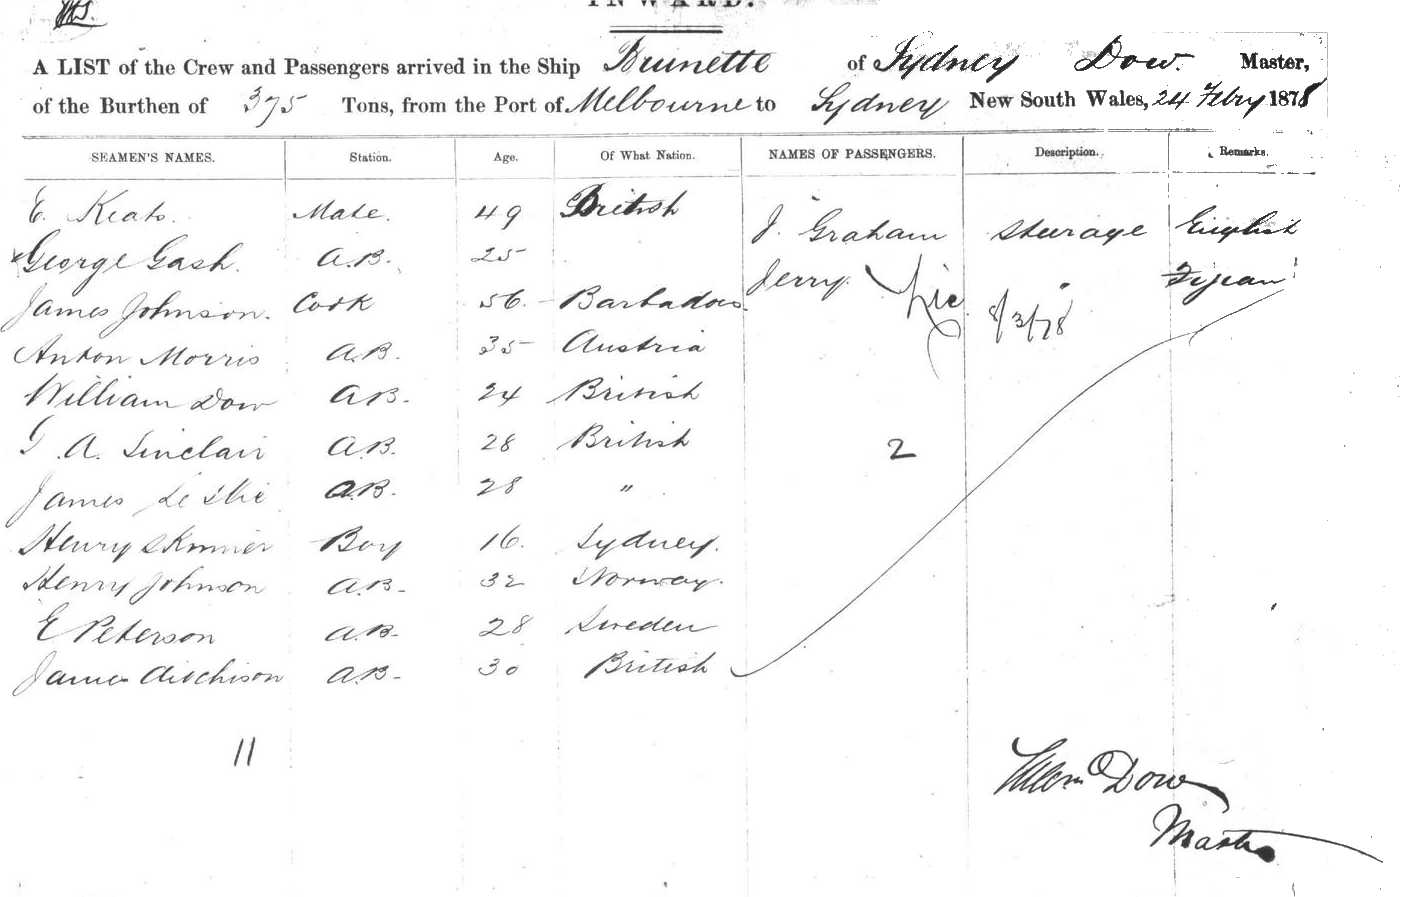 INWARD.
A LIST of the Crew and Passengers arrived in the Ship Brunette of Sydney Dow. Master,
of the Burthen of 375 Tons, from the Port of Melbourne to Sydney New South Wales, 24 Febry 1878
SEAMEN'S NAMES. Station. Age. Of What Nation. NAMES OF PASSENGERS. Description. Remarks.
E. Keats. Mate. 49 British
J. Graham Steerage English
George Gash. A.B. 25
Jerry. " Fijean
James Johnson. Cook 56. Barbadoes.
8/3/78
Anton Morris A.B. 35 Austria
William Dow A.B. 24 British
A. Sinclair A.B. 28 British
2
James Leslie A.B. 28 "
Henry Skinner Boy 16. Sydney.
Henry Johnson A.B. 32 Norway.
E Peterson A.B. 28 Sweden
James Aitchison A.B. 30 British
11
Dow
Master